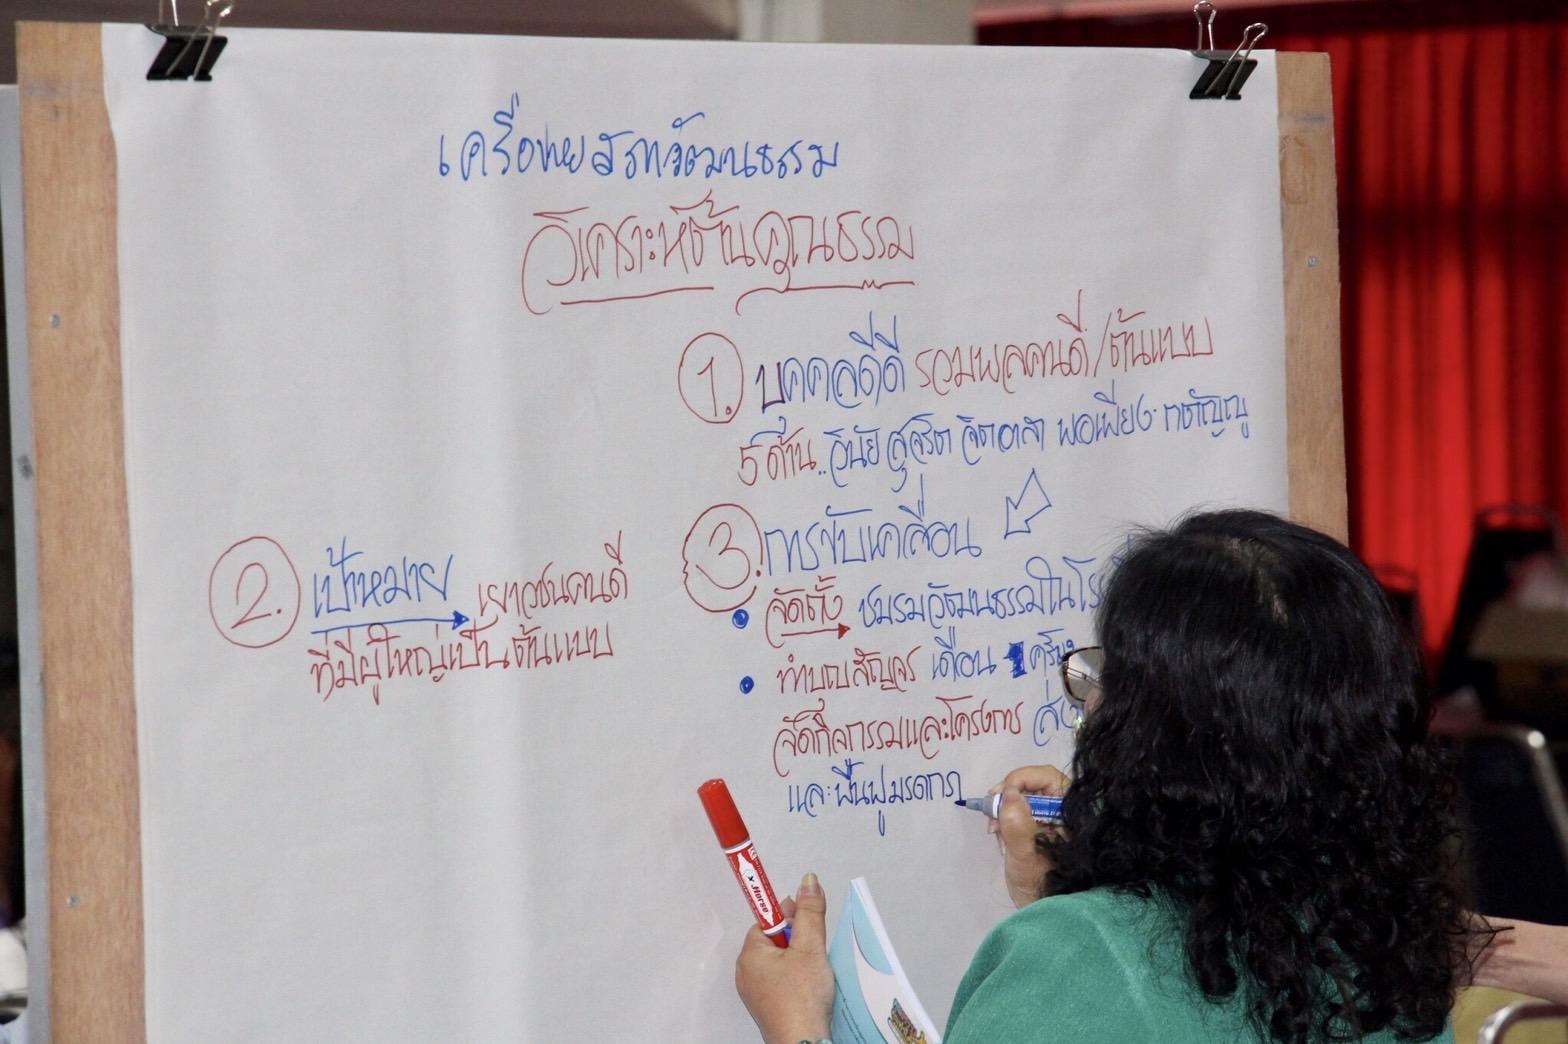 เครือข่ายสภาวัฒนธรรม
วิเคราะห์ด้านคุณธรรม
1. บุคคลดีดี รวมพลคนดี/ต้นแบบ
5 ด้าน.. วินัย สุจริต จิตอาสา พอเพียง กตัญญู
2. เป้าหมาย → เยาวชนคนดี
ที่มีผู้ใหญ่เป็นต้นแบบ
3. การขับเคลื่อน
• จัดตั้ง → ชมรมวัฒนธรรมในโร
• ทำบุญสัญจร เดือน 1 ครั้ง
จัดกิจกรรมและโครงการ
และฟื้นฟูมรดก
Horse